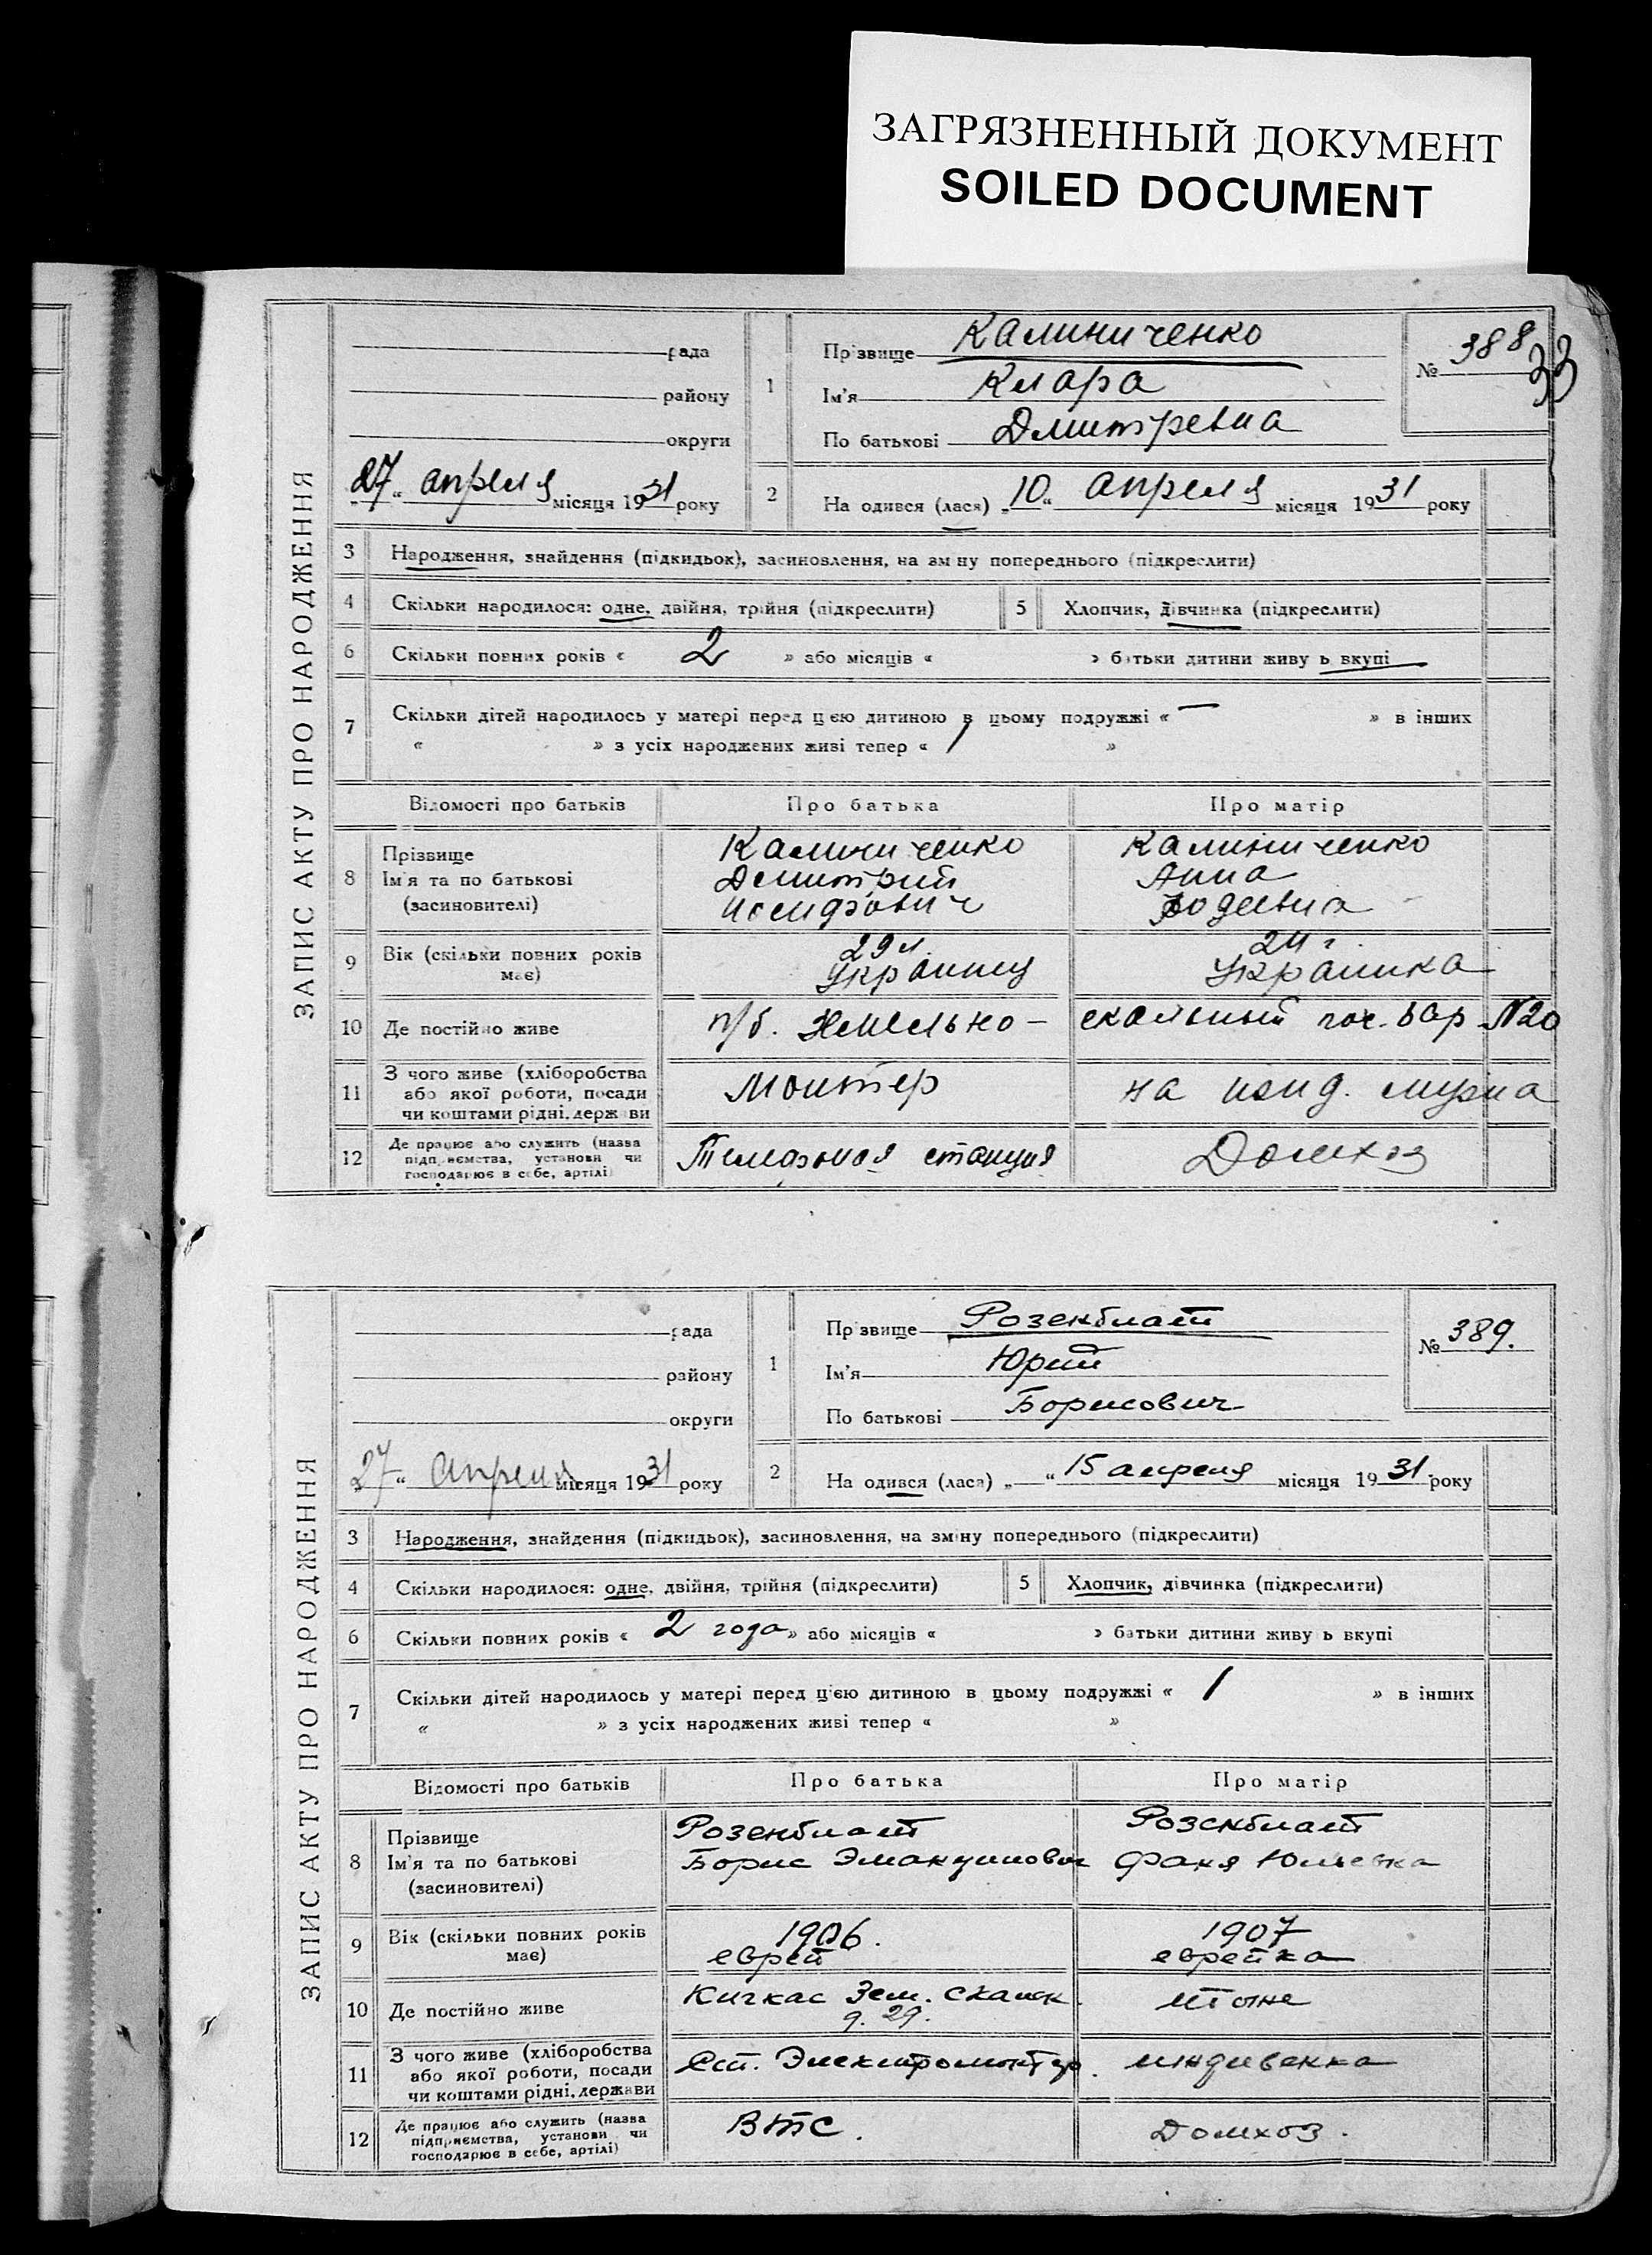 ЗАГРЯЗНЕННЫЙ ДОКУМЕНТ
SOILED DOCUMENT
ЗАПИС АКТУ ПРО НАРОДЖЕННЯ
рада
району
округи
„27“ апреля місяця 1931 року
1
Прізвище Калиниченко
Ім'я Клара
По батькові Дмитревна
№ 388
33
2
На одився (лася) „10“ апреля місяця 1931 року
3 Народження, знайдення (підкидьок), засиновлення, на зміну попереднього (підкреслити)
4 Скільки народилося: одне, двійня, трійня (підкреслити)
5 Хлопчик, дівчинка (підкреслити)
6 Скільки повних років « 2 » або місяців « » батьки дитини живу ь вкупі
7 Скільки дітей народилось у матері перед цією дитиною в цьому подружжі « — » в інших
« » з усіх народжених живі тепер « 1 »
Відомості про батьків Про батька Про матір
8 Прізвище
Ім'я та по батькові
(засиновителі)
Калиниченко
Дмитрий
Иосифович
Калиниченко
Анна
9 Вік (скільки повних років
має)
29 л.
Украинец
24 г.
Украинка
10 Де постійно живе
п/б. скальный пос. бар №20
11 З чого живе (хліборобства
або якої роботи, посади
чи коштами рідні, держави
Монтер
на ижд. мужа
12 Де працює або служить (назва
підприємства, установи чи
господарює в себе, артілі)
Телефонная станция
Домхоз
ЗАПИС АКТУ ПРО НАРОДЖЕННЯ
рада
району
округи
„27“ апреля місяця 1931 року
1
Прізвище Розенблат
Ім'я Юрий
По батькові Борисович
№ 389.
2
На одився (лася) „ “ 15 апреля місяця 1931 року
3 Народження, знайдення (підкидьок), засиновлення, на зміну попереднього (підкреслити)
4 Скільки народилося: одне, двійня, трійня (підкреслити)
5 Хлопчик, дівчинка (підкреслити)
6 Скільки повних років « 2 года » або місяців « » батьки дитини живу ь вкупі
7 Скільки дітей народилось у матері перед цією дитиною в цьому подружжі « 1 » в інших
« » з усіх народжених живі тепер « »
Відомості про батьків Про батька Про матір
8 Прізвище
Ім'я та по батькові
(засиновителі)
Розенблат
Борис
Розенблат
Фаня Юльевна
9 Вік (скільки повних років
має)
1906.
еврей
1907
еврейка
10 Де постійно живе
Кичкас Зем.
д. 29.
11 З чого живе (хліборобства
або якої роботи, посади
чи коштами рідні, держави
Электромонтер.
иждивенка
12 Де працює або служить (назва
підприємства, установи чи
господарює в себе, артілі)
ВТС.
Домхоз.